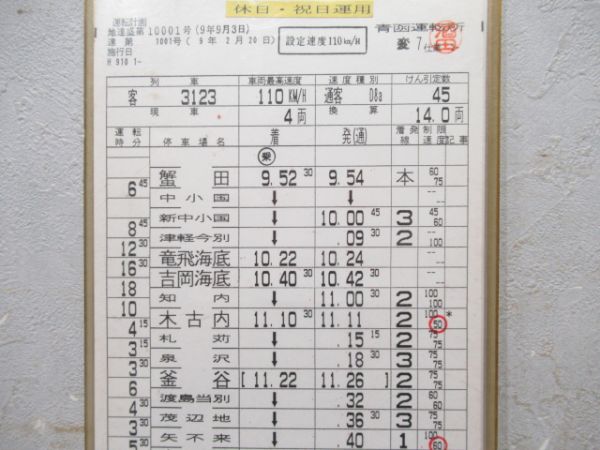 休日・祝日運用
運転計画
地達盛第10001号(9年9月3日)
運第 1001号(9年2月20日)
施行日
H 910 1-
設定速度110㎞/H
青函運転所
変 7仕業
列車 車両最高速度 速度種別 けん引定数
客 3123 110 KM/H 通客 D8a 45
現車 4両 換算 14.0両
運転時分 停車場名 着 発(通) 着発線 制限速度 記事
乗
蟹田 9.52 30 9.54 本 60 75
6 45
中小国 ↓ ↓
新中小国 ↓ 10.00 45 3 45 60
8 45
津軽今別 ↓ .09 30 2 100
12 30
竜飛海底 10.22 10.24
16 30
吉岡海底 10.40 10.42 30
18
知内 ↓ 11.00 30 2 100 100
10
木古内 11.10 30 11.11 2 100 50 *
4 15
札苅 ↓ .15 15 2 75 75
3 15
泉沢 ↓ .18 30 3 75 75
3 30
釜谷 [11.22 11.26] 2 75 75
6
渡島当別 ↓ .32 2 60 75
4 30
茂辺地 ↓ .36 30 3 75 75
3 30
矢不来 ↓ .40 1 100 60
5 30